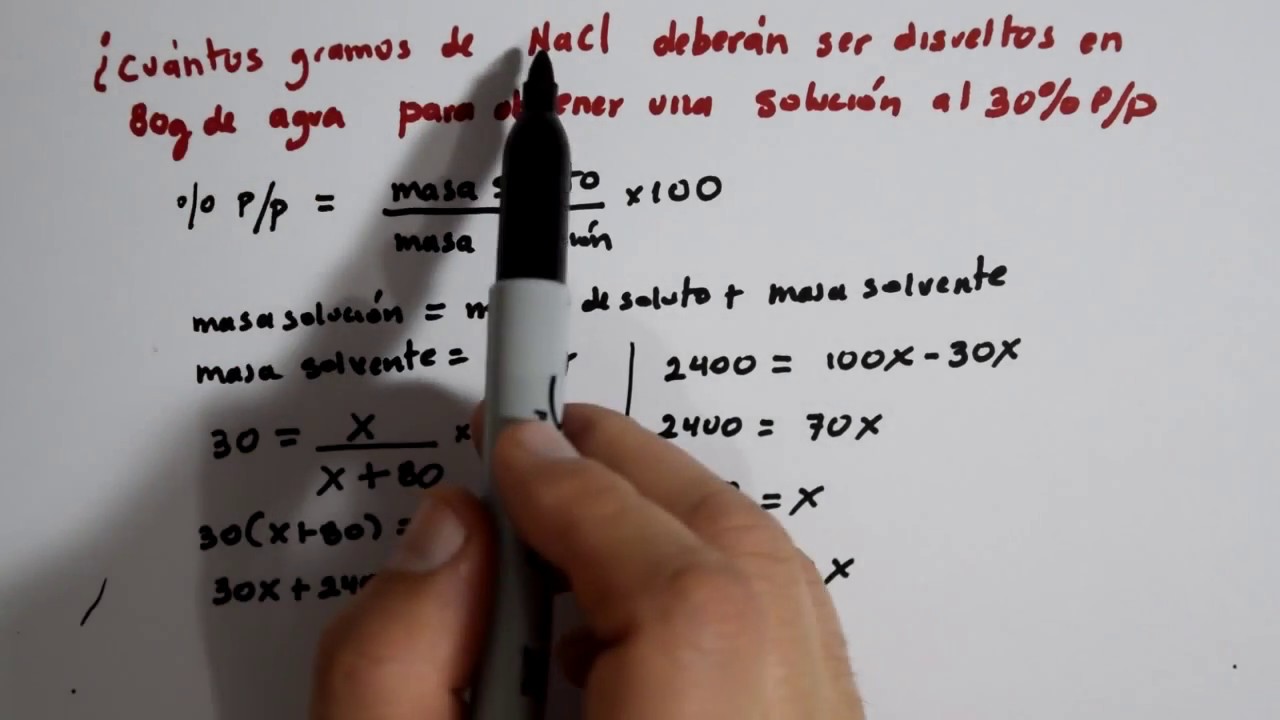 ¿cuántos gramos de NaCl deberán ser disueltos en
80g de agua para obtener una solución al 30% P/p
% P/p = masa x100
masa
masa solución = de soluto + masa solvente
masa solvente =
30 = x
x + 80
30(x+80) =
30x +
2400 = 100x - 30x
2400 = 70x
= x
x